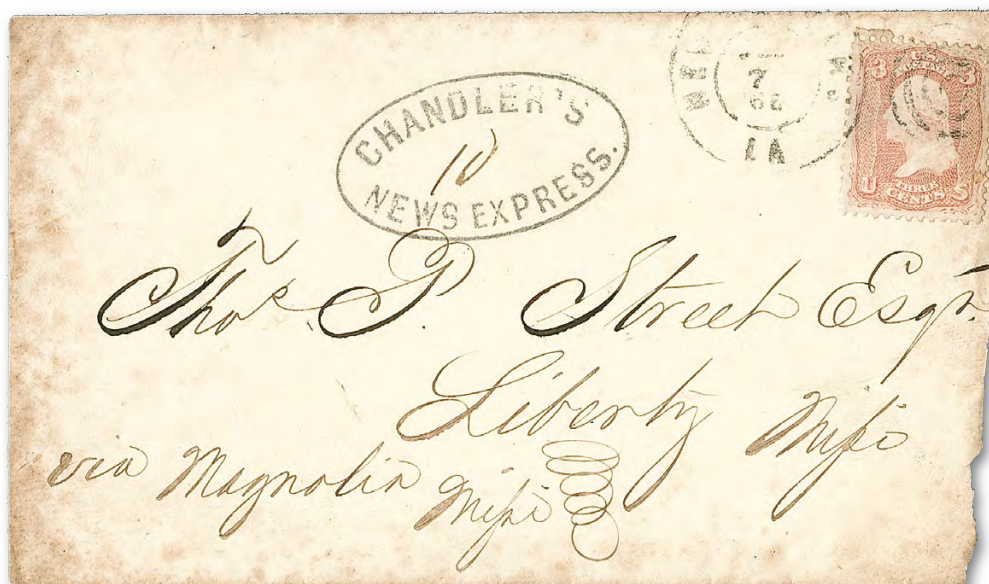 CHANDLER'S
10
NEWS EXPRESS.
7
LA
3 3
U THREE S
CENTS
Thos P. Street Esqr.
Liberty Mipi
via Magnolia
Mipi